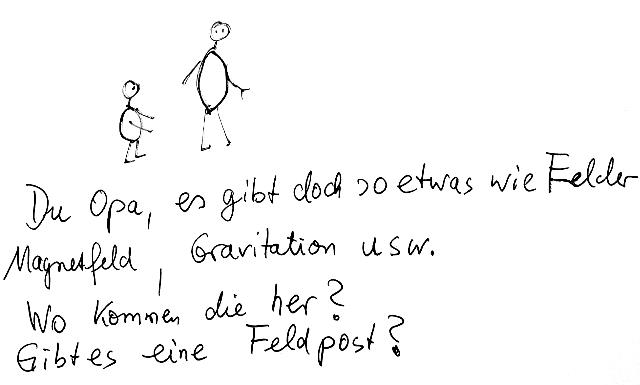 Du Opa, es gibt doch so etwas wie Felder
Magnetfeld, Gravitation usw.
Wo kommen die her?
Gibt es eine Feldpost?